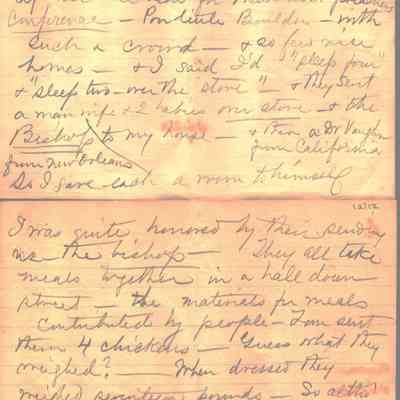 Conference - Pontilute Boulder - with
such a crowd - & so few nice
homes - & I said I'd "sleep four"
& "sleep two - over the store" - & they sent
a man wife & 2 babies over store - & the
Bishop to my house - & then a Dr Vaughn
from New Orleans
from California
So I gave each a room to himself
I was quite honored by their sending
me the bishop - They all take
meals together in a hall down
street - the materials for meals
contributed by people - Tom sent
them 4 chickens - Guess what they
weighed? - When dressed they
weighed seventeen pounds - So altho